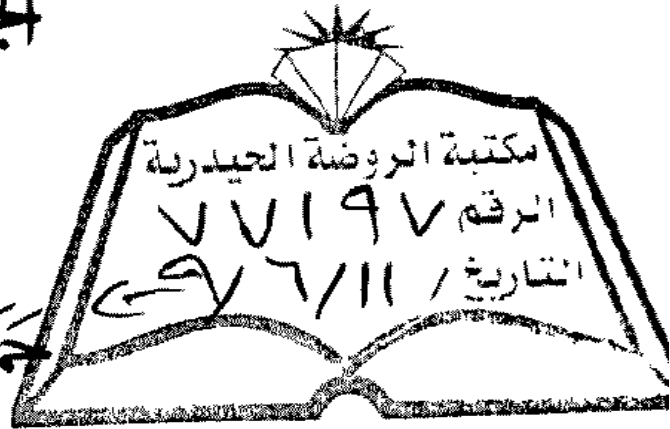 مكتبة الروضة الحيدرية
الرقم ٧٧١٩٧
التاريخ / ١١/٦